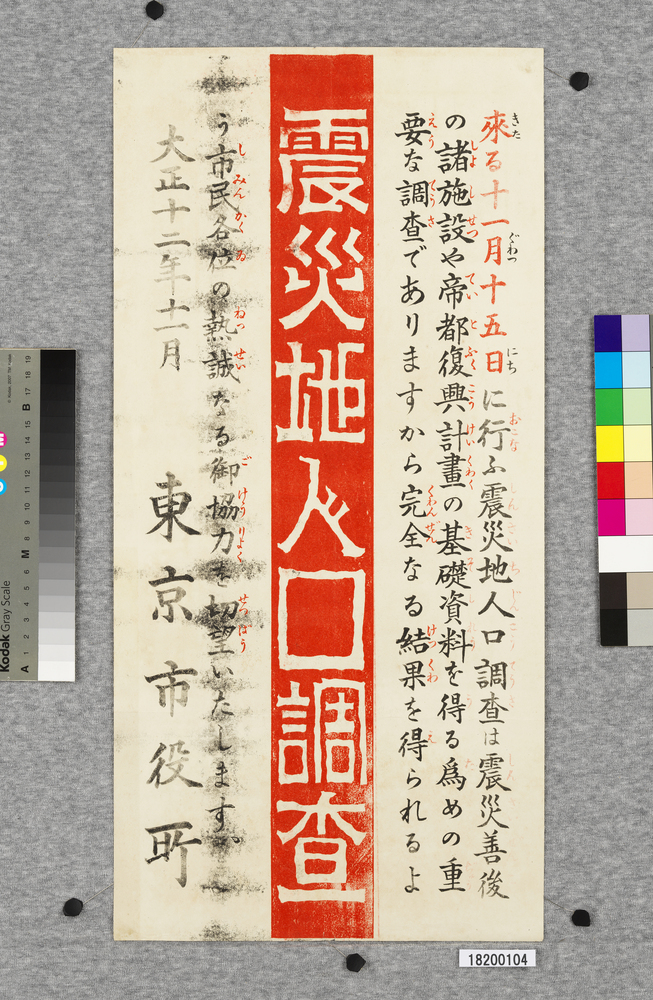 來る十一月十五日に行ふ震災地人口調査は震災善後
の諸施設や帝都復興計畫の基礎資料を得る爲めの重
要な調査でありますから完全なる結果を得られるよ
震災地人口調査
う市民各位の熱誠なる御協力を切望いたします。
大正十二年十一月
東京市役所
18200104
Kodak Gray Scale
A 1 2 3 4 5 6 M 8 9 10 11 12 13 14 15 B 17 18 19